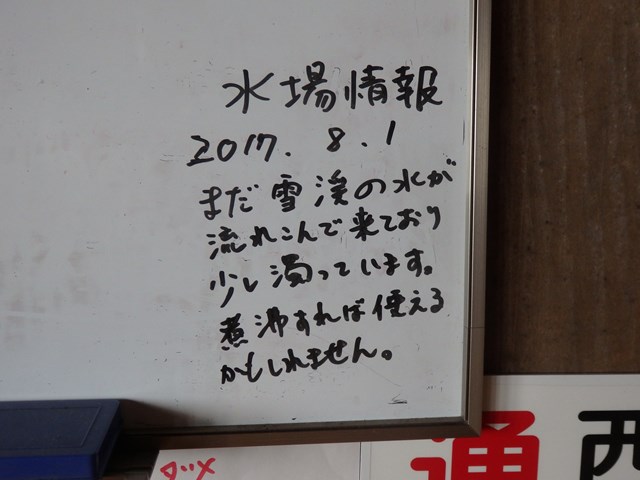 水場情報
2017.8.1
まだ雪渓の水が
流れこんで来ており
少し濁っています。
煮沸すれば使える
かもしれません。
ダメ
通 西